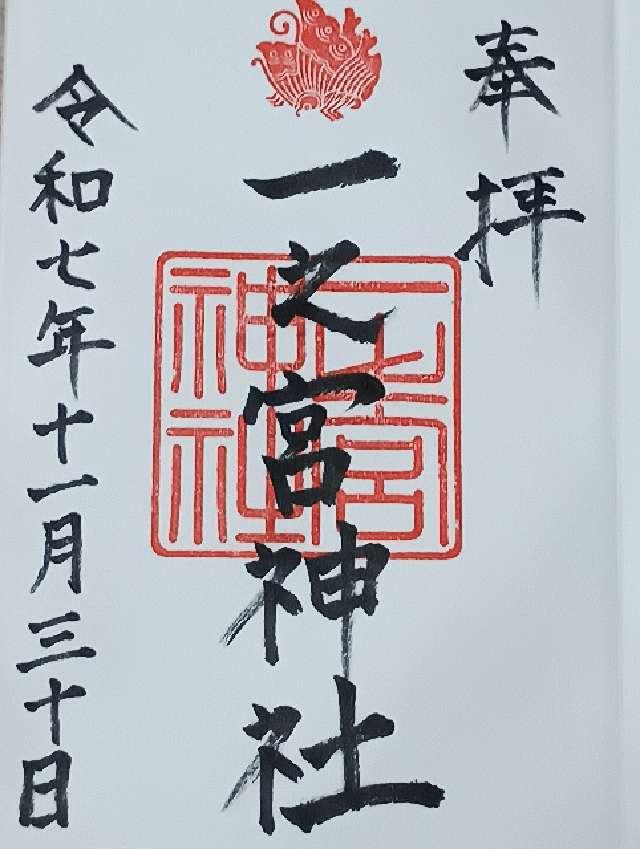 奉拝
一之宮神社
一之宮神社
令和七年十一月三十日